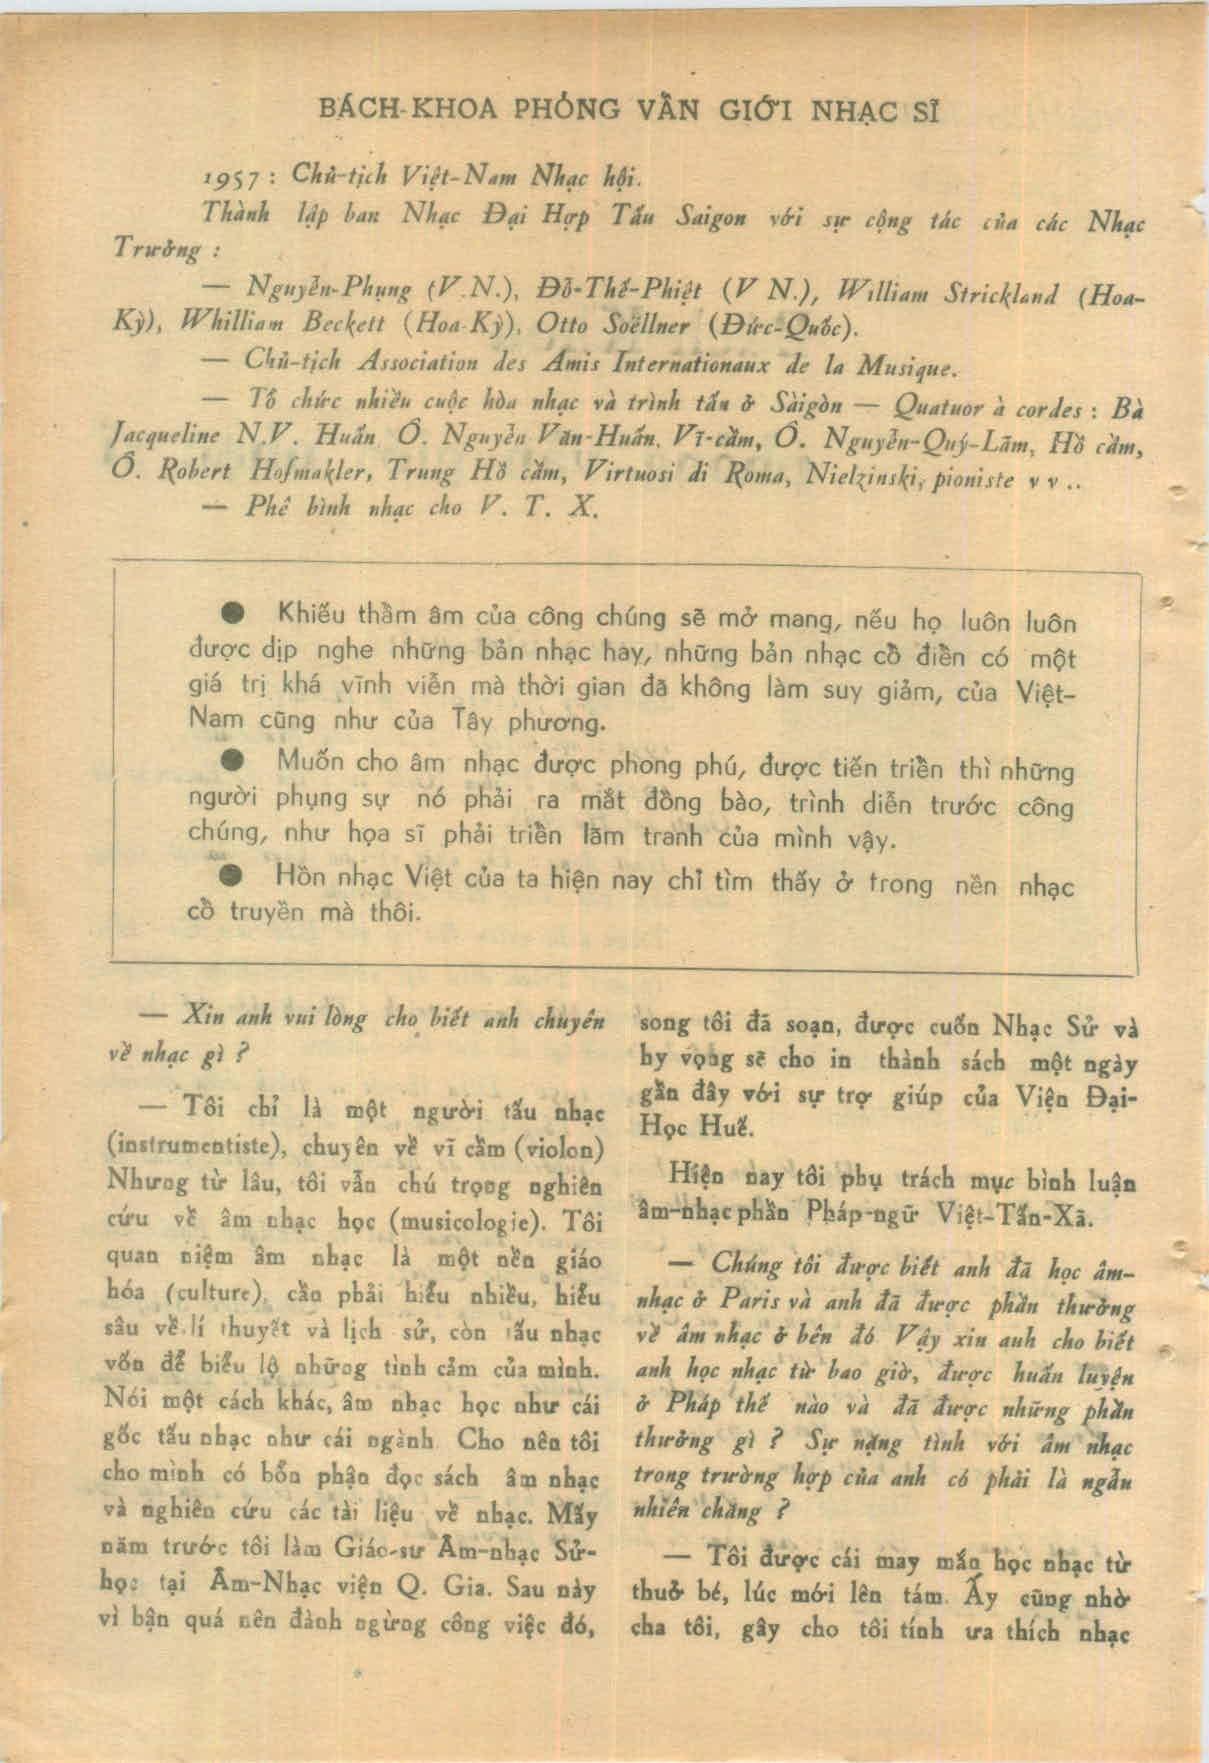 BÁCH-KHOA PHỎNG VẤN GIỚI NHẠC SĨ
1957 : Chủ-tịch Việt-Nam Nhạc hội.
Thành lập ban Nhạc Đại Hợp Tấu Saigon với sự cộng tác của các Nhạc
Trưởng :
— Nguyễn-Phụng (V.N.), Đỗ-Thế-Phiệt (V N.), William Strickland (Hoa-
Kỳ), Whilliam Beckett (Hoa-Kỳ), Otto Soëllner (Đức-Quốc).
— Chủ-tịch Association des Amis Internationaux de la Musique.
— Tổ chức nhiều cuộc hòa nhạc và trình tấu ở Sàigòn — Quatuor à cordes : Bà
Jacqueline N.V. Huấn, Ô. Nguyễn Văn-Huấn, Vĩ-cầm, Ô. Nguyễn-Quý-Lãm, Hồ cầm,
Ô. Robert Hofmakler, Trung Hồ cầm, Virtuosi di Roma, Nielzinski, pioniste v v ..
— Phê bình nhạc cho V. T. X.
● Khiếu thẩm âm của công chúng sẽ mở mang, nếu họ luôn luôn
được dịp nghe những bản nhạc hay, những bản nhạc cổ điển có một
giá trị khá vĩnh viễn mà thời gian đã không làm suy giảm, của Việt-
Nam cũng như của Tây phương.
● Muốn cho âm nhạc được phong phú, được tiến triển thì những
người phụng sự nó phải ra mắt đồng bào, trình diễn trước công
chúng, như họa sĩ phải triển lãm tranh của mình vậy.
● Hồn nhạc Việt của ta hiện nay chỉ tìm thấy ở trong nền nhạc
cổ truyền mà thôi.
— Xin anh vui lòng cho biết anh chuyên
về nhạc gì ?
— Tôi chỉ là một người tấu nhạc
(instrumentiste), chuyên về vĩ cầm (violon)
Nhưng từ lâu, tôi vẫn chú trọng nghiên
cứu về âm nhạc học (musicologie). Tôi
quan niệm âm nhạc là một nền giáo
hóa (culture), cần phải hiểu nhiều, hiểu
sâu về lí thuyết và lịch sử, còn tấu nhạc
vốn để biểu lộ những tình cảm của mình.
Nói một cách khác, âm nhạc học như cái
gốc tấu nhạc như cái ngành. Cho nên tôi
cho mình có bổn phận đọc sách âm nhạc
và nghiên cứu các tài liệu về nhạc. Mấy
năm trước tôi làm Giáo-sư Âm-nhạc Sử-
học tại Âm-Nhạc viện Q. Gia. Sau này
vì bận quá nên đành ngừng công việc đó,
song tôi đã soạn, được cuốn Nhạc Sử và
hy vọng sẽ cho in thành sách một ngày
gần đây với sự trợ giúp của Viện Đại-
Học Huế.
Hiện nay tôi phụ trách mục bình luận
âm-nhạc phần Pháp-ngữ Việt-Tấn-Xã.
— Chúng tôi được biết anh đã học âm-
nhạc ở Paris và anh đã được phần thưởng
về âm nhạc ở bên đó. Vậy xin anh cho biết
anh học nhạc từ bao giờ, được huấn luyện
ở Pháp thế nào và đã được những phần
thưởng gì ? Sự nặng tình với âm nhạc
trong trường hợp của anh có phải là ngẫu
nhiên chăng ?
— Tôi được cái may mắn học nhạc từ
thuở bé, lúc mới lên tám. Ấy cũng nhờ
cha tôi, gây cho tôi tính ưa thích nhạc